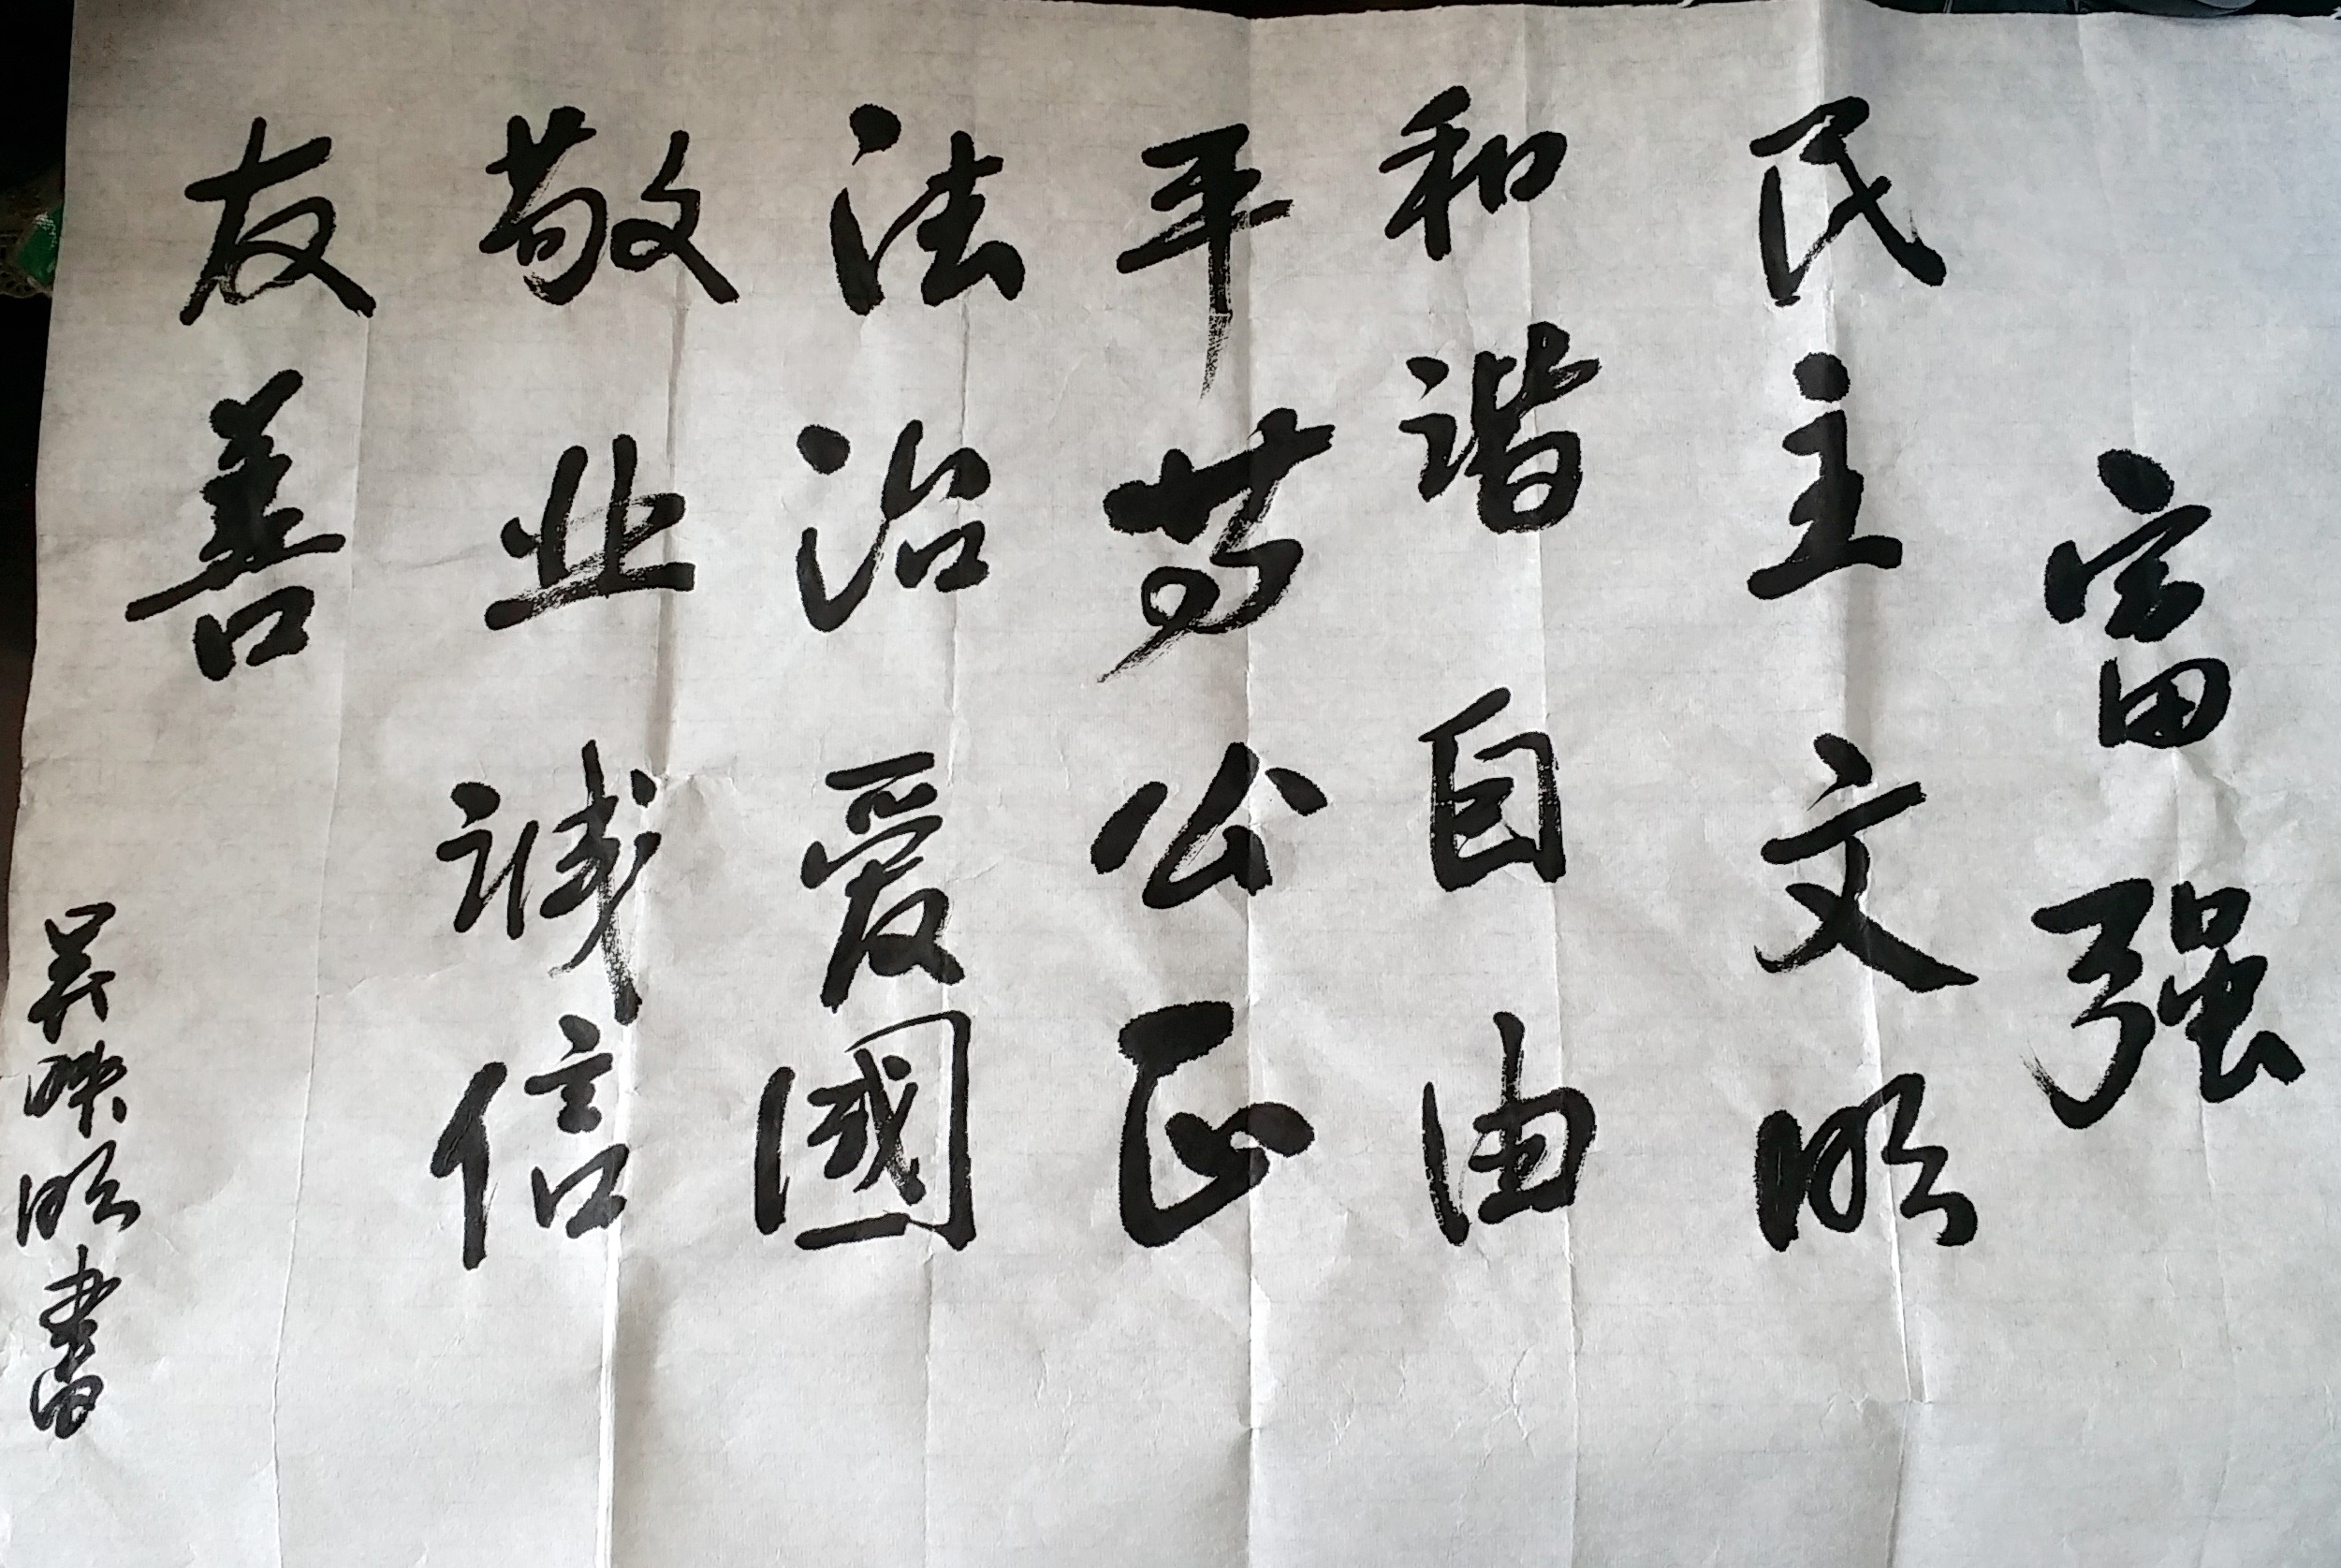 富强
民主文明
和谐自由
平等公正
法治爱國
敬业诚信
友善
吴映明书